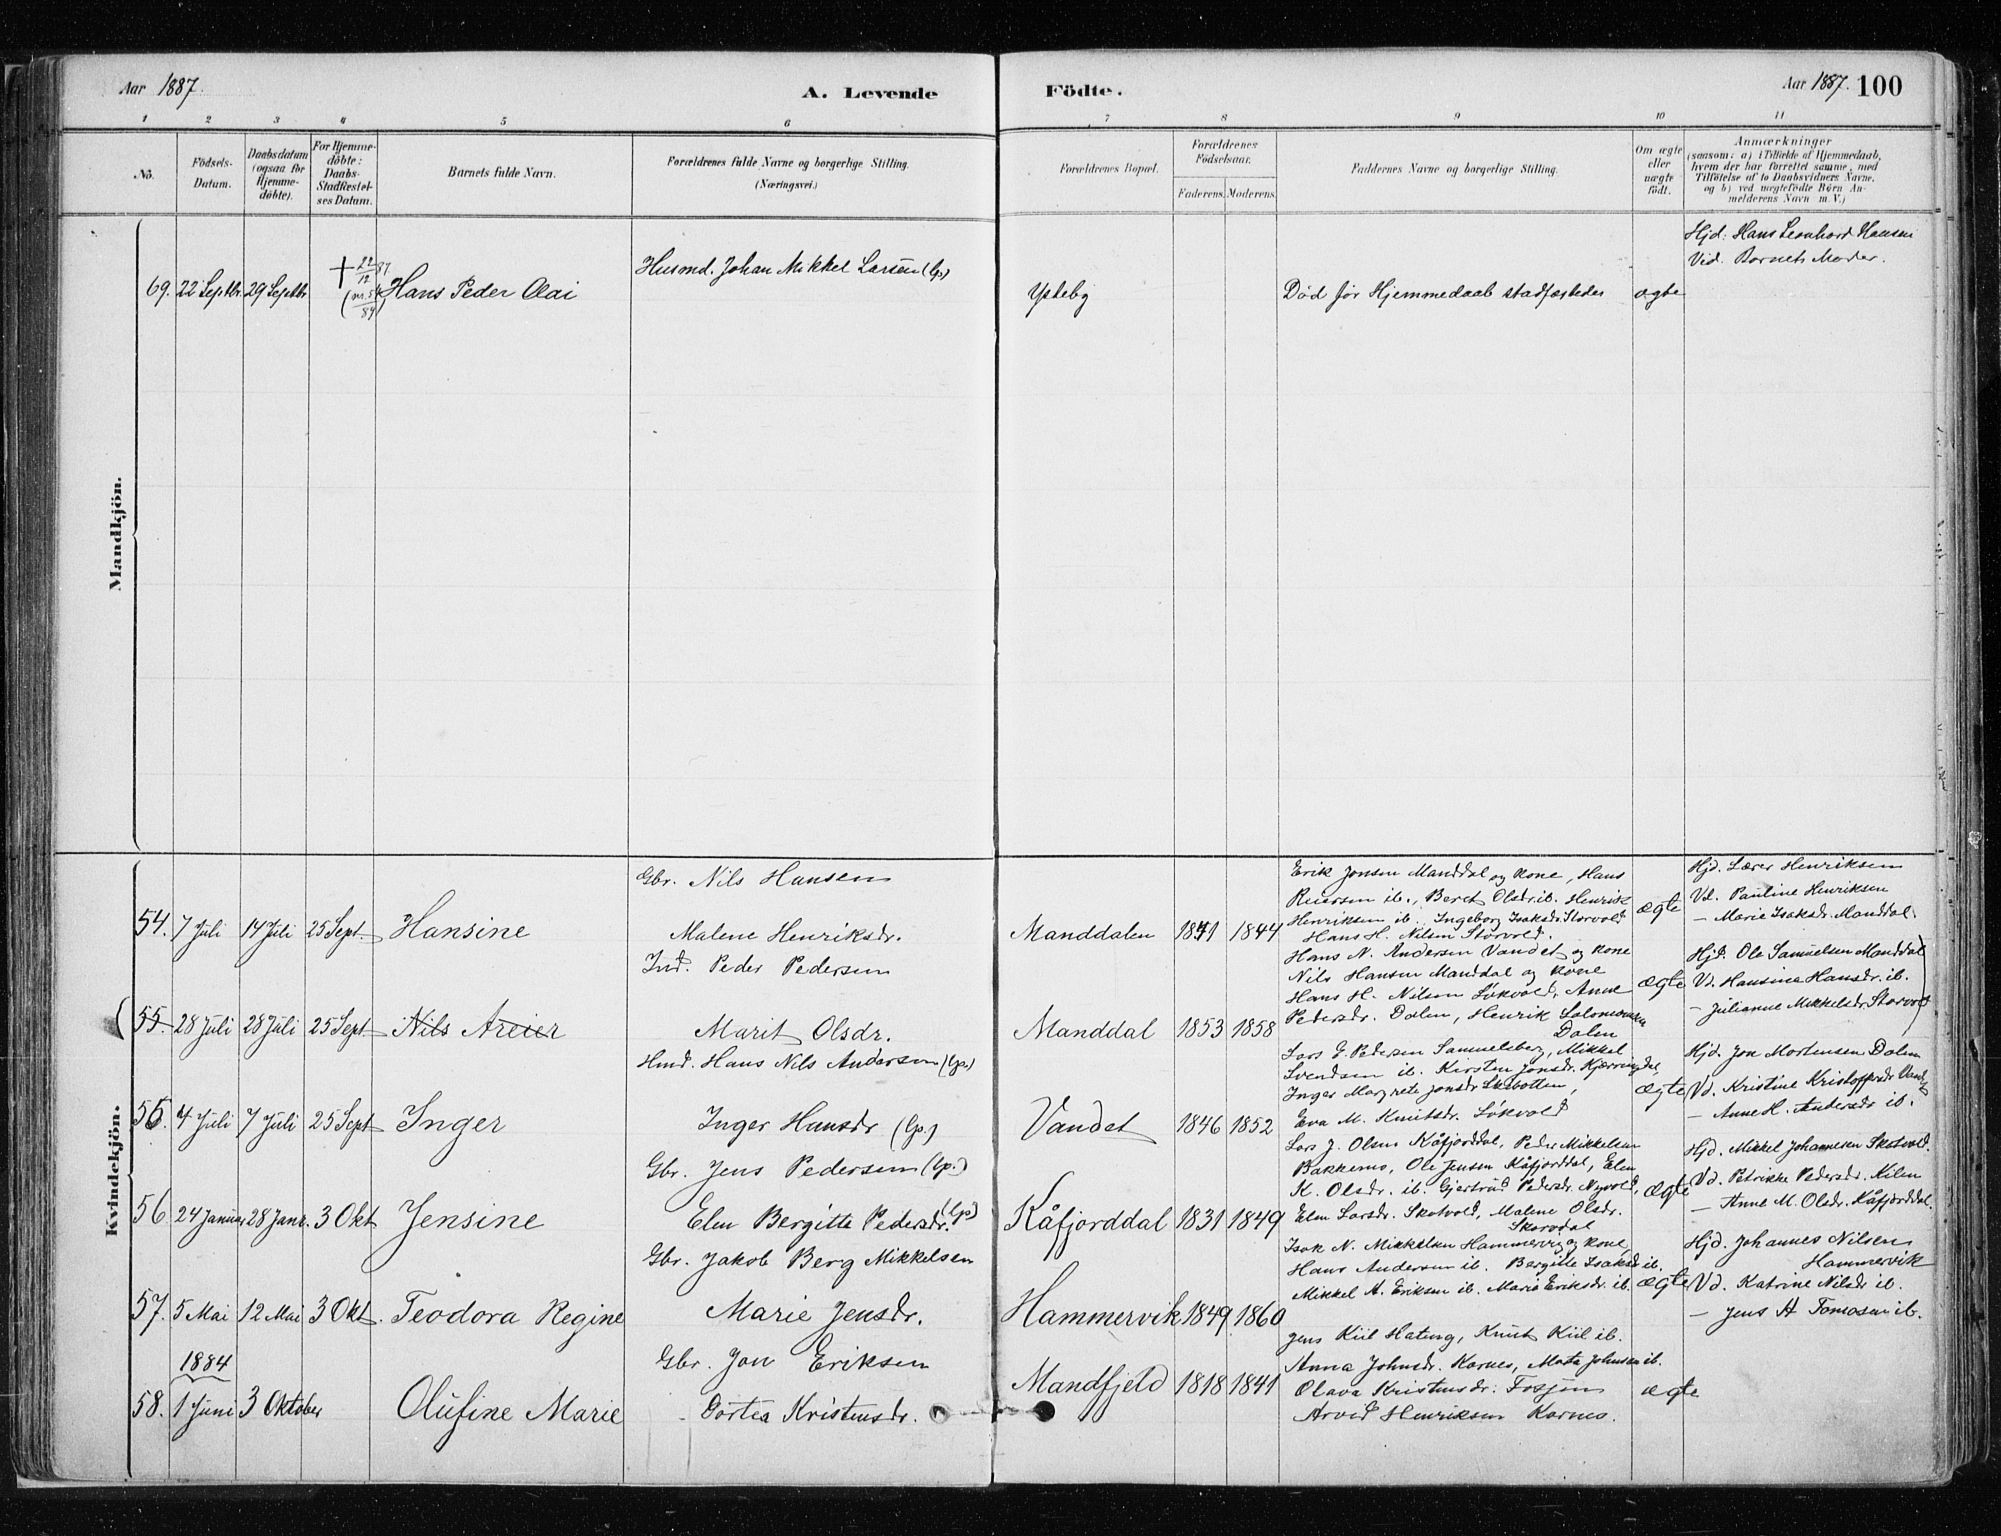 Aar 1887.
A. Levende
Födte.
Aar 1887. 100
1 2 3 4 5 6 7 8 9 10 11
No.
Födsels-
Datum.
Daabsdatum
(ogsaa for
Hjemme-
døbte).
For Hjemme-
døbte:
Daabs-
Stadfæstel-
ses Datum.
Barnets fulde Navn.
Forældrenes fulde Navne og borgerlige Stilling.
(Næringsvei.)
Forældrenes Bopæl.
Forældrenes
Födselsaar.
Faderens. Moderens.
Faddernes Navne og borgerlige Stilling.
Om ægte
eller
uægte
født.
Anmærkninger
(saasom: a) i Tilfælde af Hjemmedaab,
hvem der har forrettet samme, med
Tilføielse af to Daabsvidners Navne,
og b) ved uægtefödte Börn An-
melderens Navn m. V.)
Mandkjön.
69. 22 Septbr. 29 Septbr.
+ 22/12 87
Hans Peder Olai
Husmd. Johan Mikkel Larsen (lp.)
Ysteby
Død før Hjemmedaab stadfæstedes
ægte
Hjd. Hans Leonhard Hansen
Vid. Barnets Moder.
Kvindekjön.
54. 7 Juli 14 Juli 25 Sept. Hansine
Gbr. Nils Hansen
Malene Henriksdr.
Manddalen 1841 1844
Erik Jonsen Manddal og kone, Hans
Reiersen ib., Beret Olsdr. ib. Henrik
Henriksen ib. Ingeborg Isaksdr. Storvold
Hans H. Nilsen Storvold.
ægte
Hjd. Lærer Henriksen
Vd. Pauline Henriksen
— Marie Isaksdr. Manddal.
(55. 28 Juli 28 Juli 25 Sept. Nils Areier
Ind. Peder Pedersen
Marit Olsdr.
Manddal 1853 1858
Hans N. Andersen Vandet og kone
Nils Hansen Manddal og kone
Hans H. Nilsen Løkvold, Anne
Pedersdr. Dalen, Henrik Salomonsen
Dalen
ægte
Hjd. Ole Samuelsen Manddal
Vd. Hansine Hansdr. ib.
— Julianne Mikkelsdr. Storvold)
55. 4 Juli 7 Juli 25 Sept Inger
Hmd. Hans Nils Andersen (lp.)
Inger Hansdr (lp.)
Vandet 1846 1852
Lars E. Pedersen Samuelsberg, Mikkel
Svendsen ib. Kirsten Jonsdr. Kjerringdal,
Inger Margrete Jonsdr Skibotten,
Eva M. Knutsdr. Løkvold
ægte
Hjd. Jon Mortensen Dalen
Vd. Kristine Kristoffersdr Vandet
— Anne H. Andersdr ib.
56. 24 Januar 28 Janr. 3 Okt Jensine
Gbr. Jens Pedersen (lp.)
Elen Bergitte Pedersdr. (lp.)
Kåfjorddal 1831 1849
Lars J. Olsen Kåfjorddal, Peder Mikkelsen
Bakkemo, Ole Jensen Kåfjorddal, Elen
K. Olsdr. ib. Gjertrud Pedersdr. Nyvold,
Elen Larsdr. Skotvold, Malene Olsdr.
Skorvdal
ægte
Hjd. Mikkel Johannesen Skotvold.
Vd. Petrikke Pedersdr. Kilen
— Anne M. Olsdr. Kåfjorddal.
57. 5 Mai 12 Mai 3 Okt. Teodora Regine
Gbr. Jakob Berg Mikkelsen
Marie Jensdr.
Hammervik 1849 1860
Isak N. Mikkelsen Hammervig og kone,
Hans Andersen ib. Bergitte Isaksd ib.
Mikkel A. Eriksen ib. Marie Eriksdr. ib.
ægte
Hjd. Johannes Nilsen
Hammervik
Vd. Katrine Nilsdr ib.
— Jens A Tomasen ib.
1884
58. 1 Juni 3 Oktober Olufine Marie
Gbr. Jon Eriksen
Dortea Kristensdr.
Mandfjeld 1818 1841
Jens Kiil Hatteng, Knut Kiil ib.
Anna Johnsdr. Karnes, Marta Johnsen ib.
Olava Kristensdr. Fossen
Arvid Henriksen Karnes.
ægte